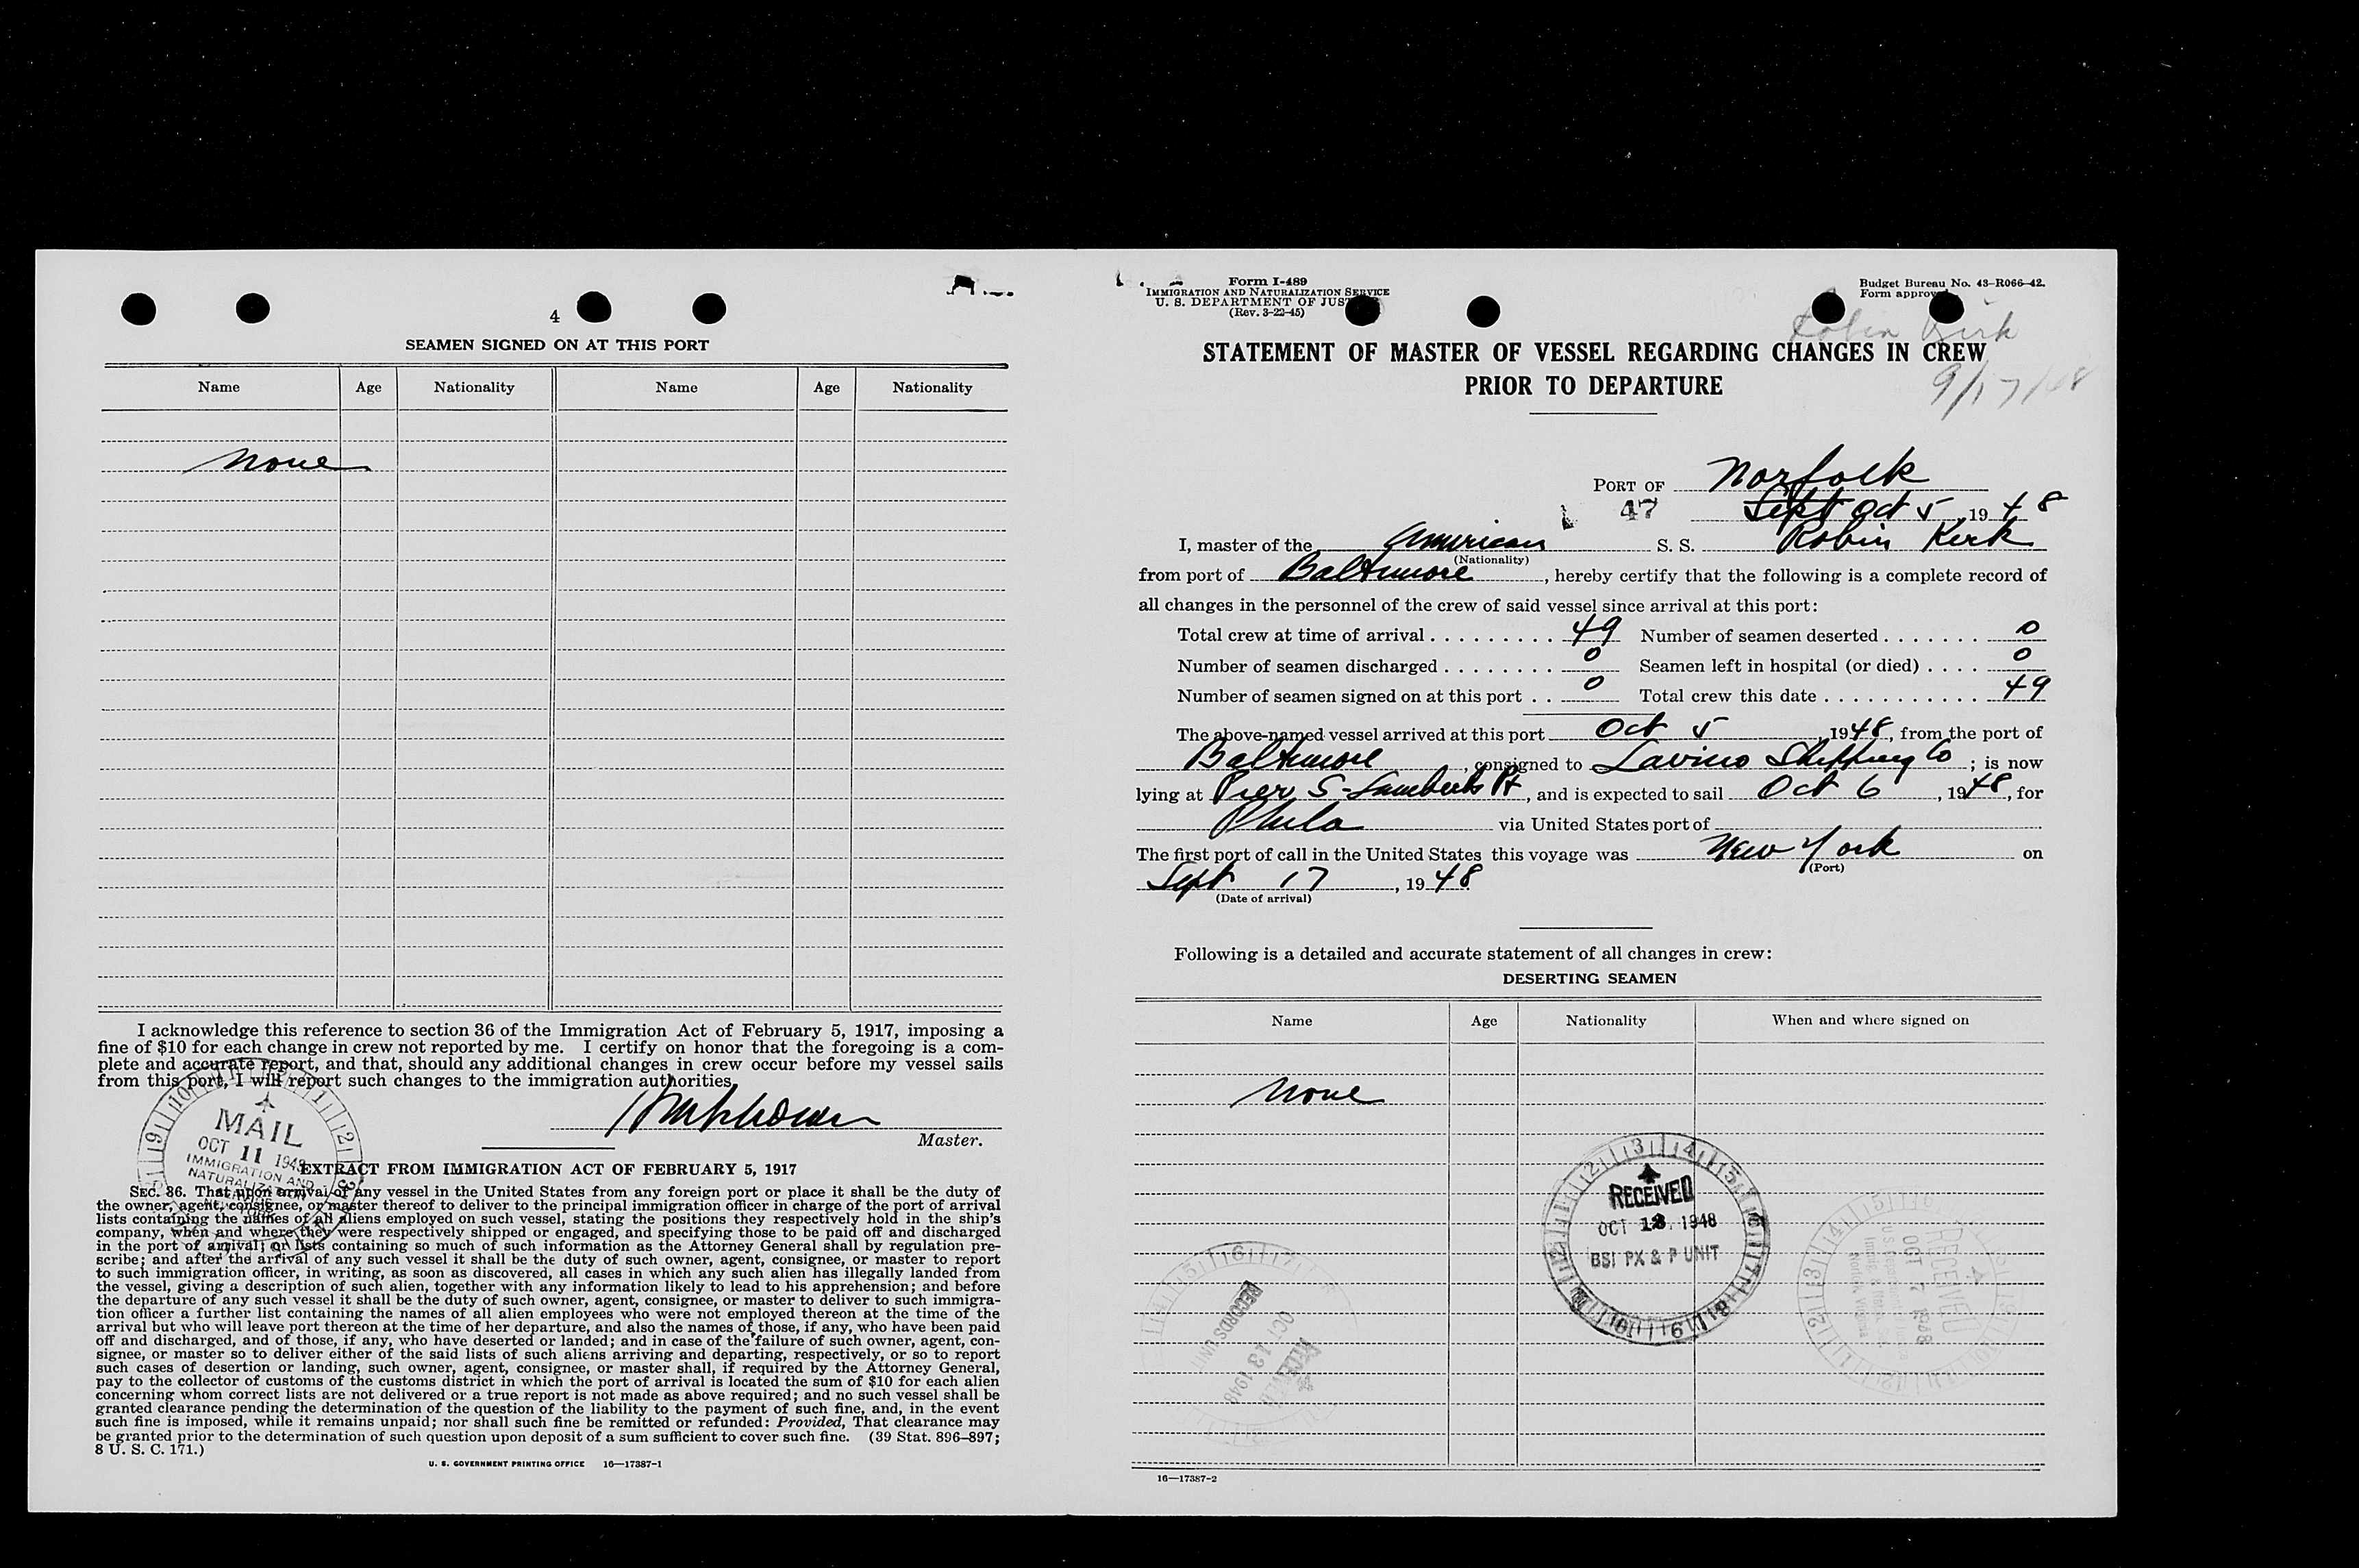 4
SEAMEN SIGNED ON AT THIS PORT
Name Age Nationality Name Age Nationality
None
I acknowledge this reference to section 36 of the Immigration Act of February 5, 1917, imposing a
fine of $10 for each change in crew not reported by me. I certify on honor that the foregoing is a com-
plete and accurate report, and that, should any additional changes in crew occur before my vessel sails
from this port, I will report such changes to the immigration authorities.
Master.
MAIL
OCT 11 1948
IMMIGRATION AND
EXTRACT FROM IMMIGRATION ACT OF FEBRUARY 5, 1917
SEC. 36. That upon arrival of any vessel in the United States from any foreign port or place it shall be the duty of
the owner, agent, consignee, or master thereof to deliver to the principal immigration officer in charge of the port of arrival
lists containing the names of all aliens employed on such vessel, stating the positions they respectively hold in the ship's
company, when and where they were respectively shipped or engaged, and specifying those to be paid off and discharged
in the port of arrival; or lists containing so much of such information as the Attorney General shall by regulation pre-
scribe; and after the arrival of any such vessel it shall be the duty of such owner, agent, consignee, or master to report
to such immigration officer, in writing, as soon as discovered, all cases in which any such alien has illegally landed from
the vessel, giving a description of such alien, together with any information likely to lead to his apprehension; and before
the departure of any such vessel it shall be the duty of such owner, agent, consignee, or master to deliver to such immigra-
tion officer a further list containing the names of all alien employees who were not employed thereon at the time of the
arrival but who will leave port thereon at the time of her departure, and also the names of those, if any, who have been paid
off and discharged, and of those, if any, who have deserted or landed; and in case of the failure of such owner, agent, con-
signee, or master so to deliver either of the said lists of such aliens arriving and departing, respectively, or so to report
such cases of desertion or landing, such owner, agent, consignee, or master shall, if required by the Attorney General,
pay to the collector of customs of the customs district in which the port of arrival is located the sum of $10 for each alien
concerning whom correct lists are not delivered or a true report is not made as above required; and no such vessel shall be
granted clearance pending the determination of the question of the liability to the payment of such fine, and, in the event
such fine is imposed, while it remains unpaid; nor shall such fine be remitted or refunded: Provided, That clearance may
be granted prior to the determination of such question upon deposit of a sum sufficient to cover such fine. (39 Stat. 896–897;
8 U. S. C. 171.)
U. S. GOVERNMENT PRINTING OFFICE 16—17387-1
Form I-489
IMMIGRATION AND NATURALIZATION SERVICE
U. S. DEPARTMENT OF JUS
(Rev. 3-22-45)
Budget Bureau No. 43-R066-42.
Form approv
Robin Kirk
9/17/48
STATEMENT OF MASTER OF VESSEL REGARDING CHANGES IN CREW
PRIOR TO DEPARTURE
PORT OF Norfolk
47 Sept Oct 5, 1948
I, master of the American S. S. Robin Kirk
(Nationality)
from port of Baltimore, hereby certify that the following is a complete record of
all changes in the personnel of the crew of said vessel since arrival at this port:
Total crew at time of arrival . . . . . . . . . 49 Number of seamen deserted . . . . . . . 0
Number of seamen discharged . . . . . . . . 0 Seamen left in hospital (or died) . . . . 0
Number of seamen signed on at this port . . 0 Total crew this date . . . . . . . . . . . . 49
The above-named vessel arrived at this port Oct 5, 1948, from the port of
Baltimore, consigned to Lavino Shipping Co; is now
lying at Pier S - Lamberts Pt, and is expected to sail Oct 6, 1948, for
Phila via United States port of
The first port of call in the United States this voyage was New York on
(Port)
Sept 17, 1948
(Date of arrival)
Following is a detailed and accurate statement of all changes in crew:
DESERTING SEAMEN
Name Age Nationality When and where signed on
None
RECEIVED
OCT 13 1948
BSI PX & P UNIT
RECORDS UNIT
OCT 13 1948
RECEIVED
RECEIVED
OCT 7 1948
Norfolk, Virginia
16—17387-2